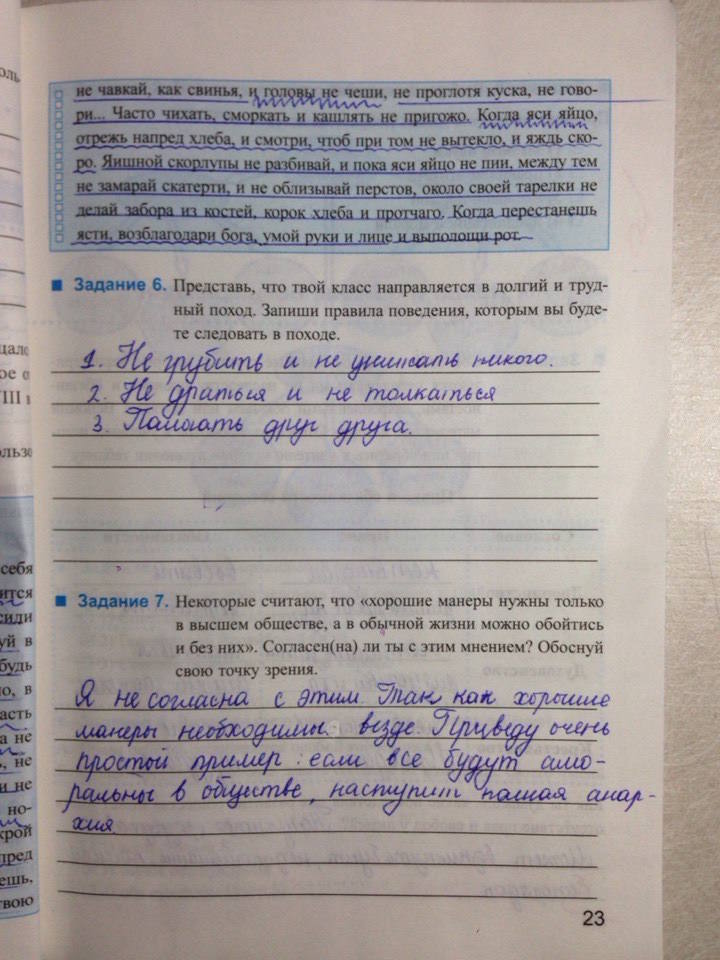 не чавкай, как свинья, и головы не чеши, не проглотя куска, не гово-
ри... Часто чихать, сморкать и кашлять не пригожо. Когда яси яйцо,
отрежь напред хлеба, и смотри, чтоб при том не вытекло, и яждь ско-
ро. Яишной скорлупы не разбивай, и пока яси яйцо не пии, между тем
не замарай скатерти, и не облизывай перстов, около своей тарелки не
делай забора из костей, корок хлеба и протчаго. Когда перестанешь
ясти, возблагодари бога, умой руки и лице и выполощи рот.
Задание 6. Представь, что твой класс направляется в долгий и труд-
ный поход. Запиши правила поведения, которым вы буде-
те следовать в походе.
1. Не грубить и не унижать никого.
2. Не драться и не толкаться
3. Помогать друг друга.
Задание 7. Некоторые считают, что «хорошие манеры нужны только
в высшем обществе, а в обычной жизни можно обойтись
и без них». Согласен(на) ли ты с этим мнением? Обоснуй
свою точку зрения.
Я не согласна с этим. Так как хорошие
манеры необходимы везде. Приведу очень
простой пример: если все будут амо-
ральны в обществе, наступит полная анар-
хия
23
себя
ится
сили
уй в
будь
но, в
асть
а не
, не
и не
но-
крой
пред
ешь,
твою